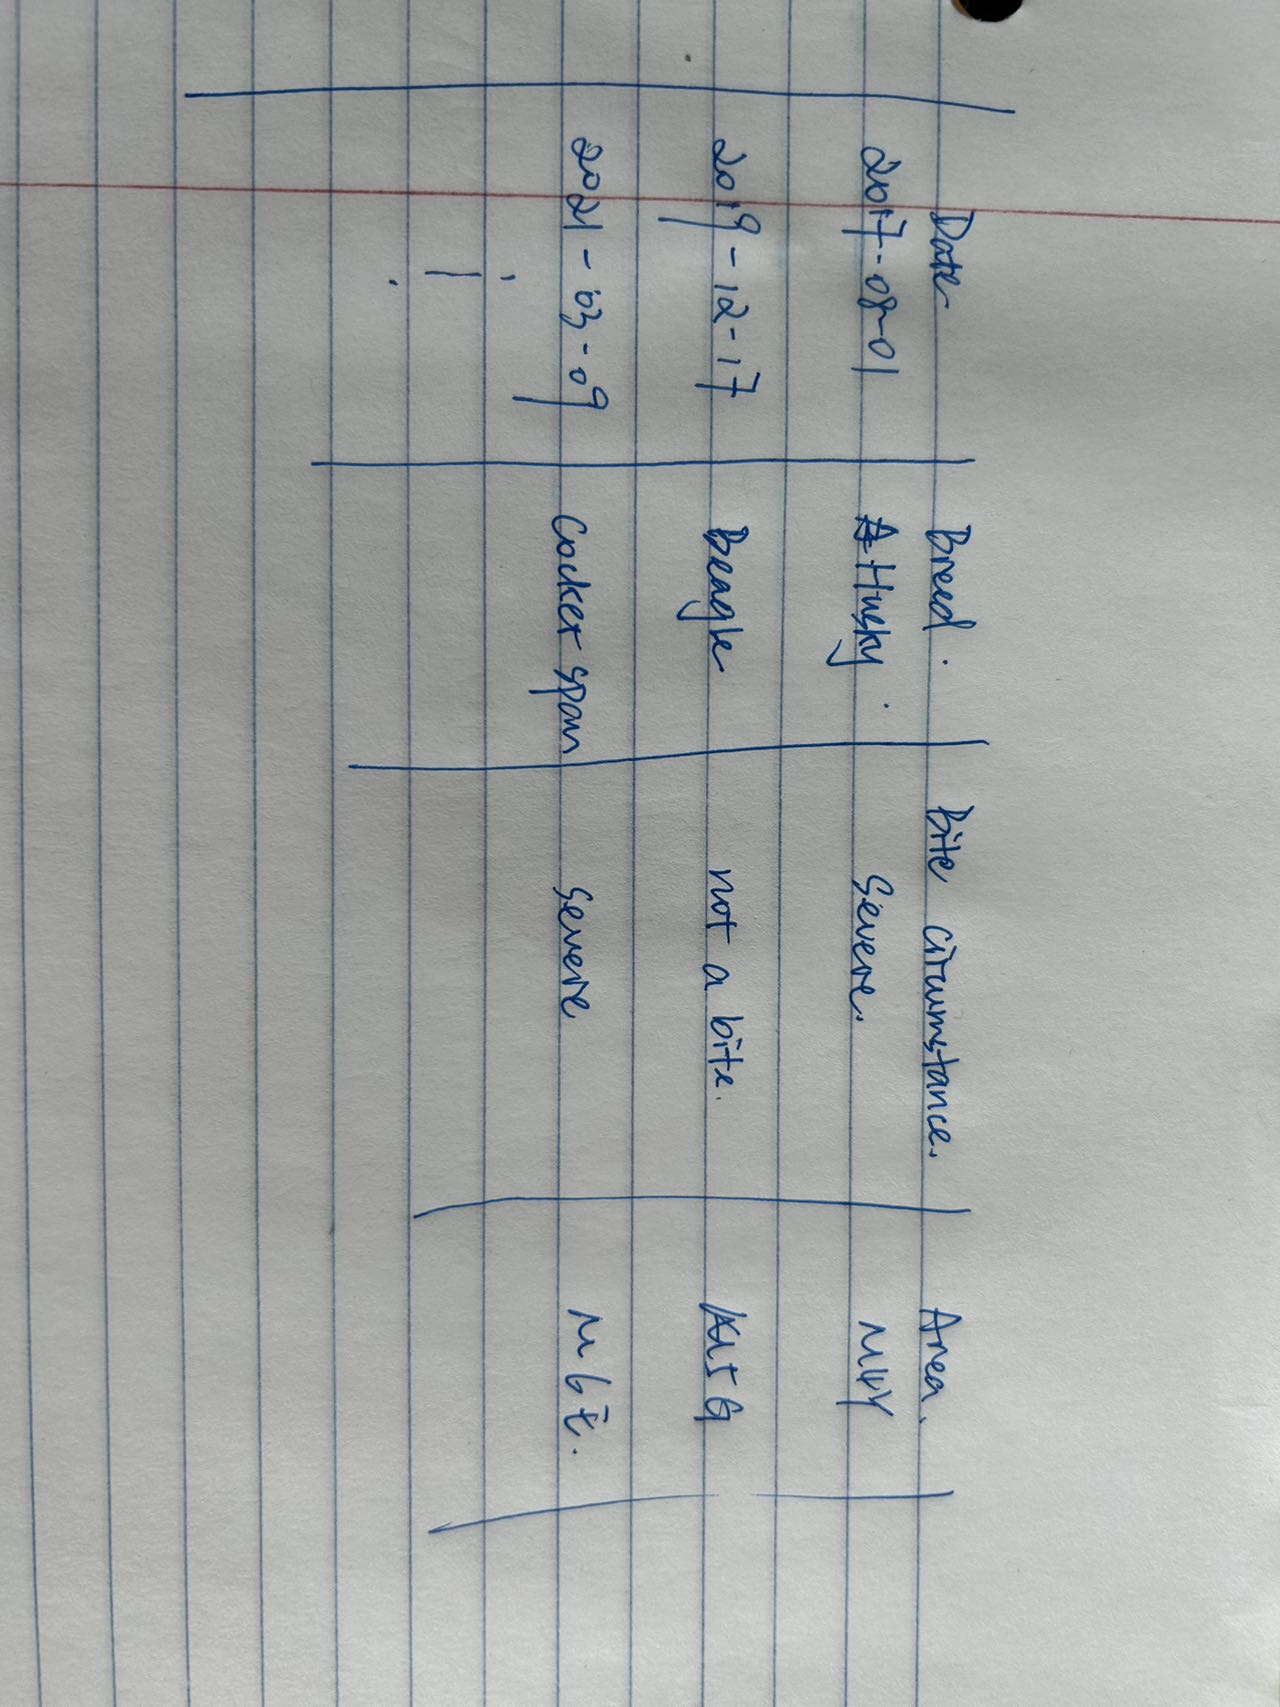 Date Breed. Bite circumstance. Area.
2017-08-01 Husky. Severe. M4Y
2019-12-17 Beagle not a bite. M5G
2021-03-09 Cocker span severe M6E.